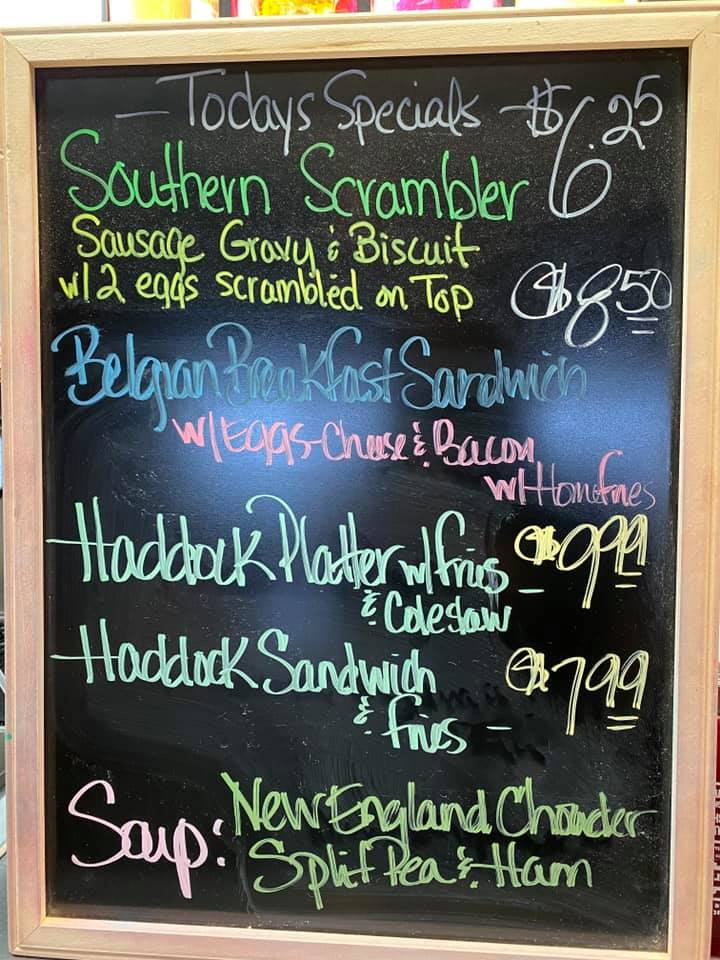 — Todays Specials - $6.25
Southern Scrambler
Sausage Gravy & Biscuit
w/ 2 eggs scrambled on Top
$8.50
Belgian Breakfast Sandwich
w/ Eggs-Cheese & Bacon
w/ Homefries
Haddock Platter w/ fries - $9.99
& Coleslaw
Haddock Sandwich $7.99
& fries -
Soup: New England Chowder
Split Pea & Ham